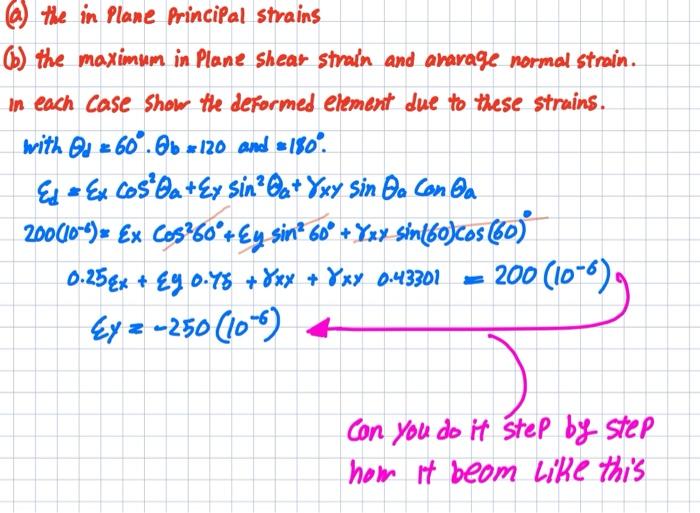 (a) the in Plane Principal strains
(b) the maximum in Plane Shear Strain and avarage normal strain.
in each Case Show the deformed element due to these strains.
with θd = 60°. θb = 120 and = 180°.
εd = εx cos²θa + εy sin²θa + γxy sin θa Con θa
200(10⁻⁶) = εx Cos²60° + εy sin² 60° + γxy sin(60)cos(60)°
0.25εx + εy 0.75 + γxx + γxy 0.43301 = 200 (10⁻⁶)
εy = -250 (10⁻⁶)
Can you do it step by step
how it beom Like this